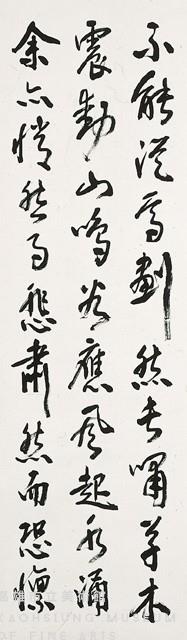 不能從焉劃然長嘯草木
震動山鳴谷應風起水涌
余亦悄然而悲肅然而恐凜
高雄市立美術館
KAOHSIUNG MUSEUM
OF FINE ARTS